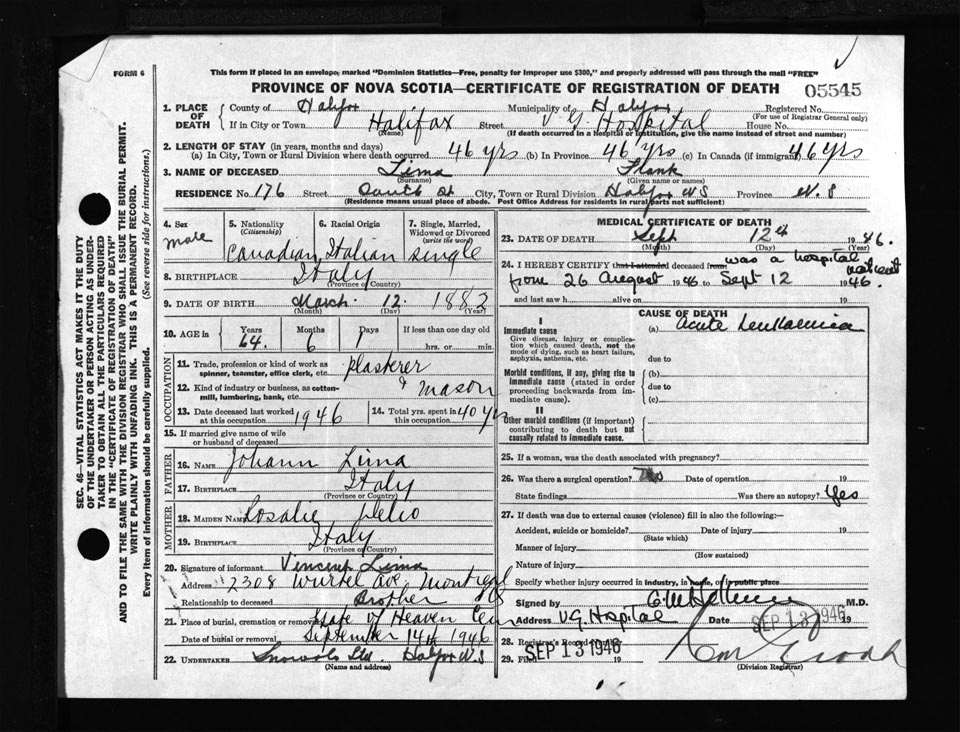 FORM 6
This form if placed in an envelope, marked "Dominion Statistics—Free, penalty for improper use $300," and properly addressed will pass through the mail "FREE"
PROVINCE OF NOVA SCOTIA—CERTIFICATE OF REGISTRATION OF DEATH
05545
1. PLACE OF DEATH
County of Halifax Municipality of Halifax Registered No.
(For use of Registrar General only)
If in City or Town Halifax Street V. G. Hospital House No.
(Name) (If death occurred in a hospital or institution, give the name instead of street and number)
2. LENGTH OF STAY (in years, months and days)
(a) In City, Town or Rural Division where death occurred 46 yrs (b) In Province 46 yrs (c) In Canada (if immigrant) 46 yrs
3. NAME OF DECEASED Lima Frank
(Surname) (Given name or names)
RESIDENCE No. 176 Street South St City, Town or Rural Division Halifax N S Province N. S
(Residence means usual place of abode. Post Office Address for residents in rural parts not sufficient)
4. Sex 5. Nationality (Citizenship) 6. Racial Origin 7. Single, Married, Widowed or Divorced (write the word)
male Canadian Italian single
8. BIRTHPLACE Italy
(Province or Country)
9. DATE OF BIRTH March 12 1882
(Month) (Day) (Year)
10. AGE in Years Months Days If less than one day old
64 6 hrs. or min.
OCCUPATION
11. Trade, profession or kind of work as spinner, teamster, office clerk, etc. Plasterer
12. Kind of industry or business, as cotton-mill, lumbering, bank, etc. & mason
13. Date deceased last worked at this occupation 1946 14. Total yrs. spent in this occupation 40 yrs
15. If married give name of wife or husband of deceased
FATHER
16. NAME Johann Lima
17. BIRTHPLACE Italy
(Province or Country)
MOTHER
18. MAIDEN NAME Rosalie
19. BIRTHPLACE Italy
(Province or Country)
20. Signature of informant Vincent Lima
Address 2308 Ave, Montreal
Relationship to deceased Brother
21. Place of burial, cremation or removal Gate of Heaven Cem
Date of burial or removal September 14th 1946
22. UNDERTAKER Snows Ltd. Halifax N. S
(Name and address)
MEDICAL CERTIFICATE OF DEATH
23. DATE OF DEATH Sept 12th 1946.
(Month) (Day) (Year)
24. I HEREBY CERTIFY that I attended deceased from was a hospital patient
from 26 August 1946 to Sept 12 1946.
and last saw h alive on 19
CAUSE OF DEATH
I
Immediate cause (a) Acute Leukaemia
Give disease, injury or complication which caused death, not the mode of dying, such as heart failure, asphyxia, asthenia, etc.
due to
Morbid conditions, if any, giving rise to immediate cause (stated in order proceeding backwards from immediate cause).
(b)
due to
(c)
II
Other morbid conditions (if important) contributing to death but not causally related to immediate cause.
25. If a woman, was the death associated with pregnancy?
26. Was there a surgical operation? Date of operation 19
State findings Was there an autopsy? Yes
27. If death was due to external causes (violence) fill in also the following:—
Accident, suicide or homicide? Date of injury 19
(State which)
Manner of injury
(How sustained)
Nature of injury
Specify whether injury occurred in industry, in home, or in public place
Signed by M.D.
Address V.G. Hospital Date SEP 13 1946 19
28. Registrar's Record Number
29. Filed SEP 13 1946 19
(Division Registrar)
SEC. 46—VITAL STATISTICS ACT MAKES IT THE DUTY
OF THE UNDERTAKER OR PERSON ACTING AS UNDER-
TAKER TO OBTAIN ALL THE PARTICULARS REQUIRED
IN THE "CERTIFICATE OF REGISTRATION OF DEATH"
AND TO FILE THE SAME WITH THE DIVISION REGISTRAR WHO SHALL ISSUE THE BURIAL PERMIT.
WRITE PLAINLY WITH UNFADING INK. THIS IS A PERMANENT RECORD.
Every item of information should be carefully supplied. (See reverse side for instructions.)